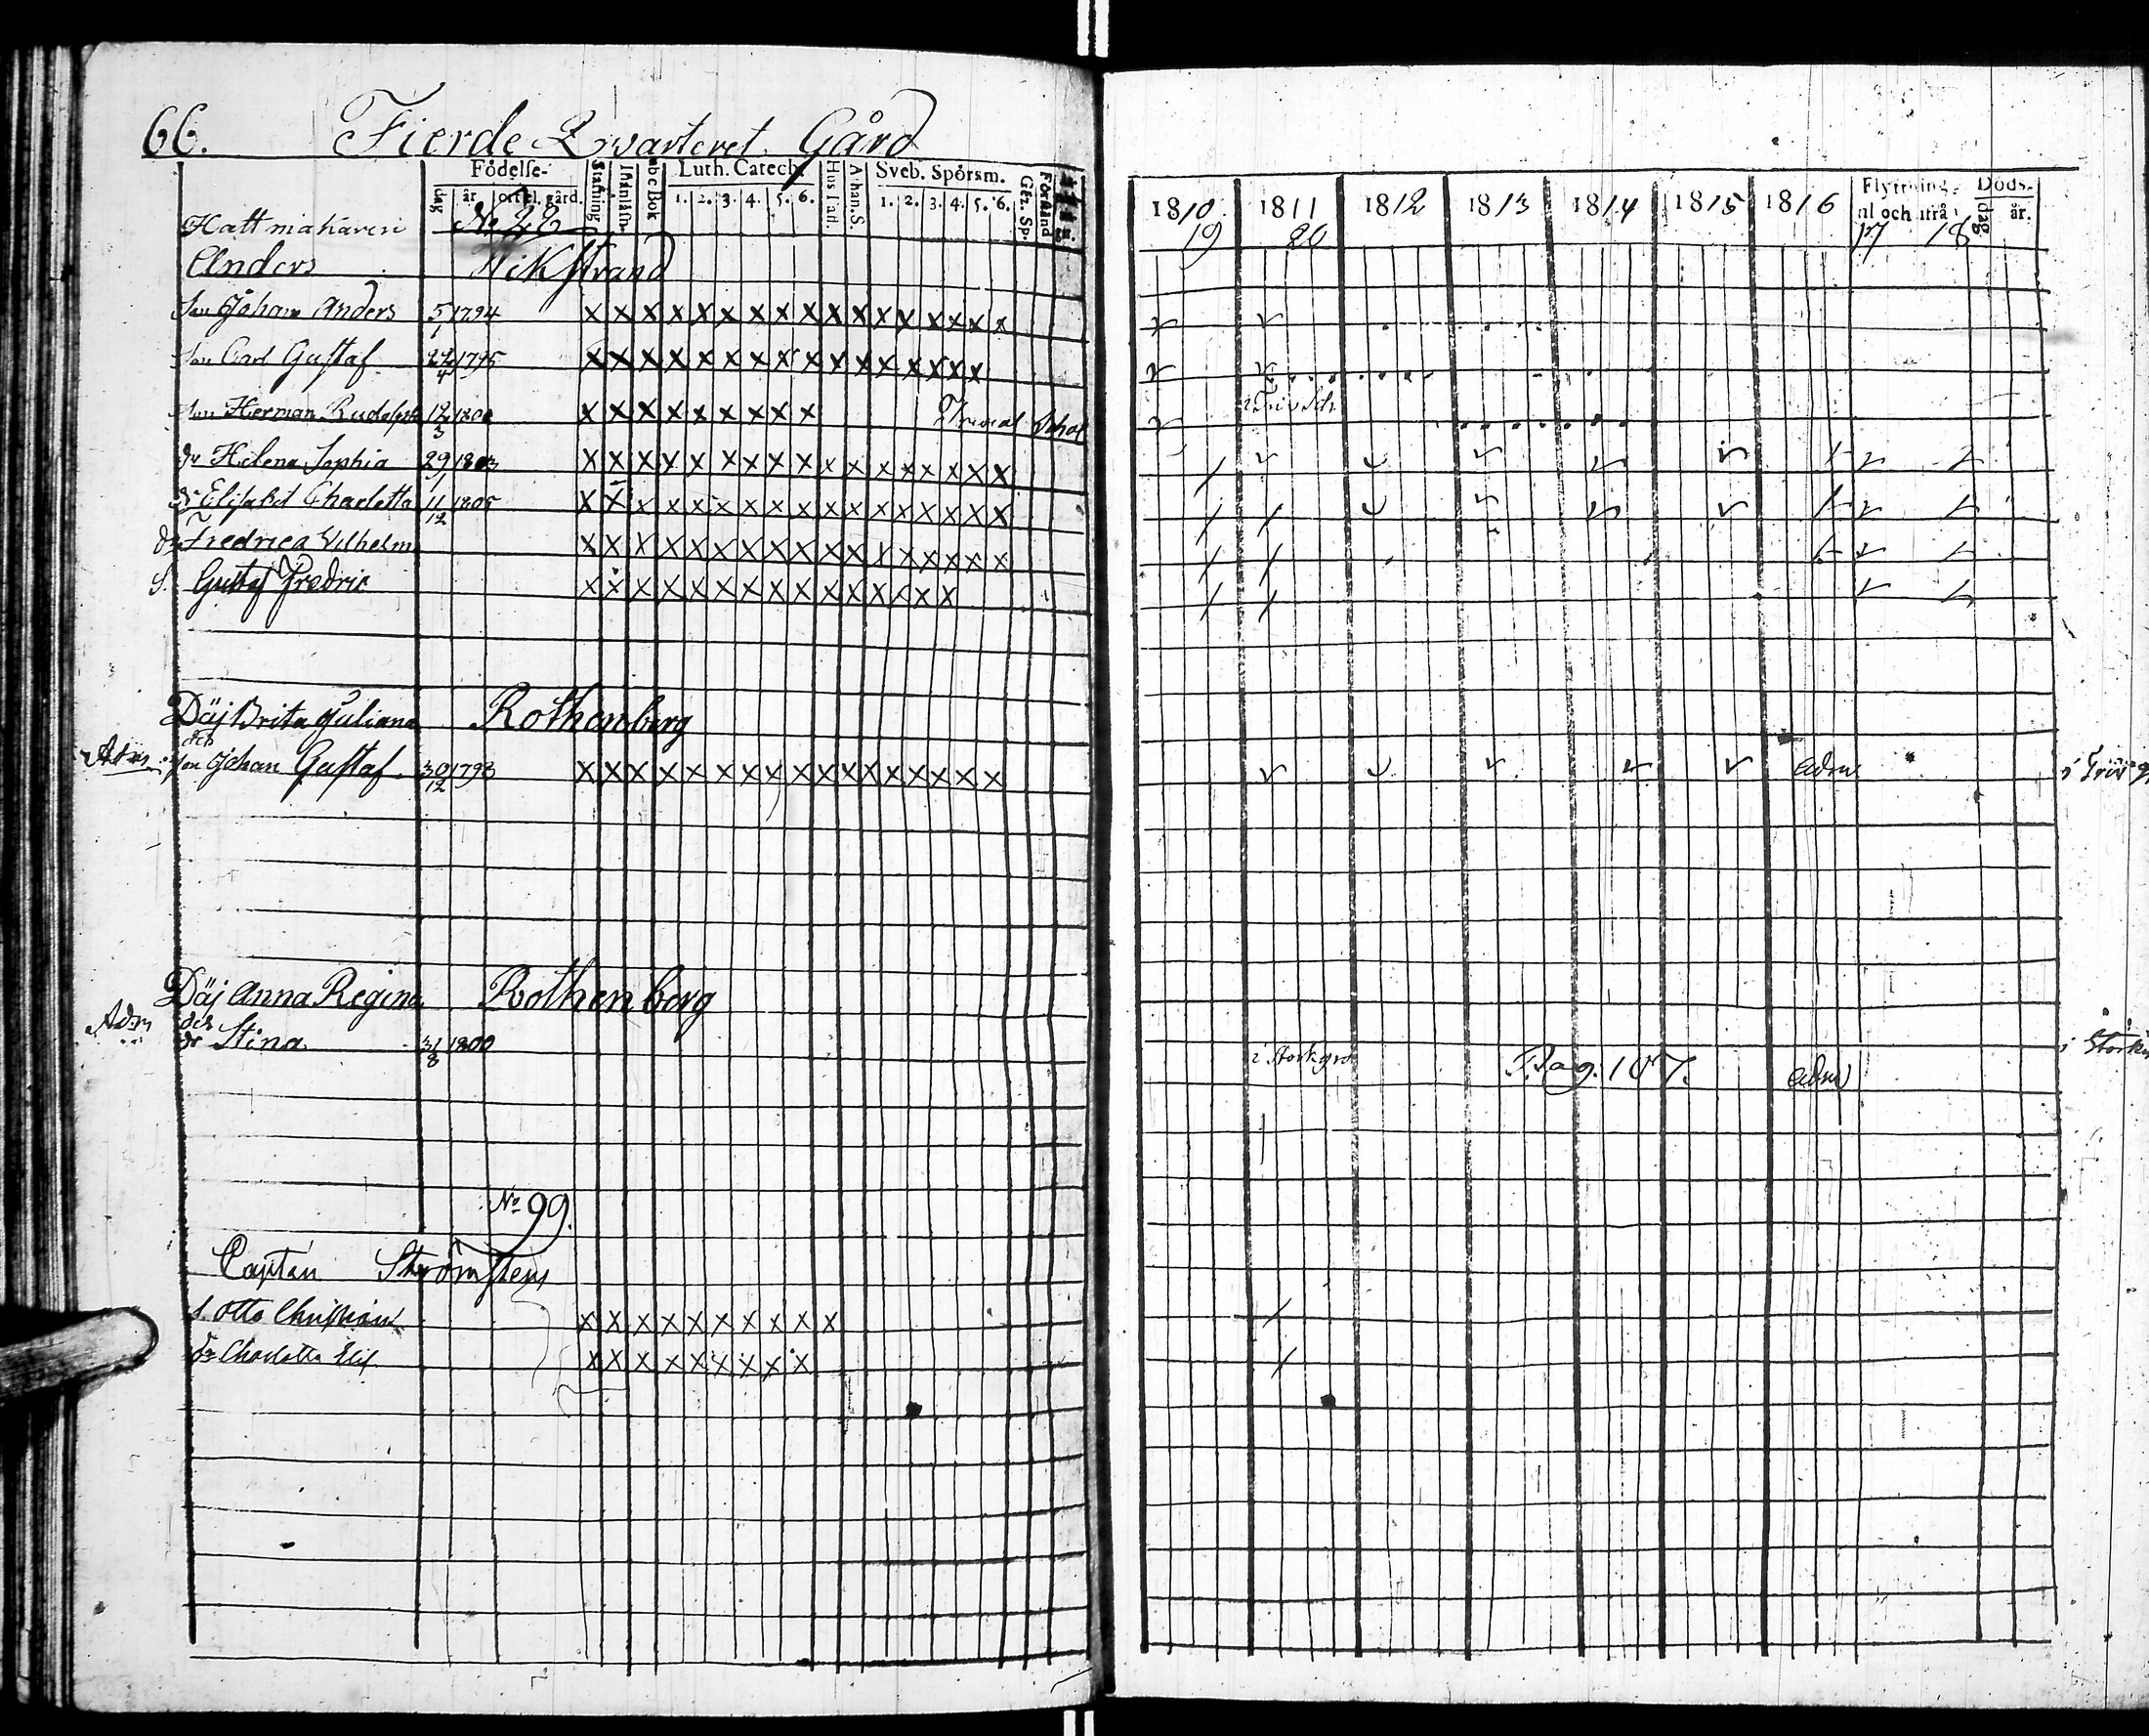 66. Fierde Qwarteret Gård
Födelse-
Stafning
Innanläsn.
abc Bok
Luth. Catech.
Hus Tafl.
Athan. S.
Sveb. Spörsm.
Gez. Sp.
Förstånd
dag år ort el. gård.
1. 2. 3. 4. 5. 6.
1. 2. 3. 4. 5. 6.
Hattmakaren
Anders Wikstrand
Son Johan Anders 5/1 1794
Son Carl Gustaf 24/4 1795
Son Herman Rudolph 12/3 Trivial Schol
dr Helena Sophia 29/1 1803
dr Elisabet Charlotta 11/12 1805
dr Fredrica Vilhelm
S. Gustaf Fredric
Däj Brita Juliana Rothenberg
des
Adm. Son Johan Gustaf 30/12 1793
Däj Anna Regina Rothenberg
des
Adm dr Stina 31/8 1800
No 99.
Captän Strömsten
S. Otto Christian
dr Charlotta Elis
1810 1811 1812 1813 1814 1815 1816
Flyttning, til och ifrån
Döds-
dag år.
19 20 17 18
i Triv Sch
adm i Triv
i Storkyn Pag. 107. adm